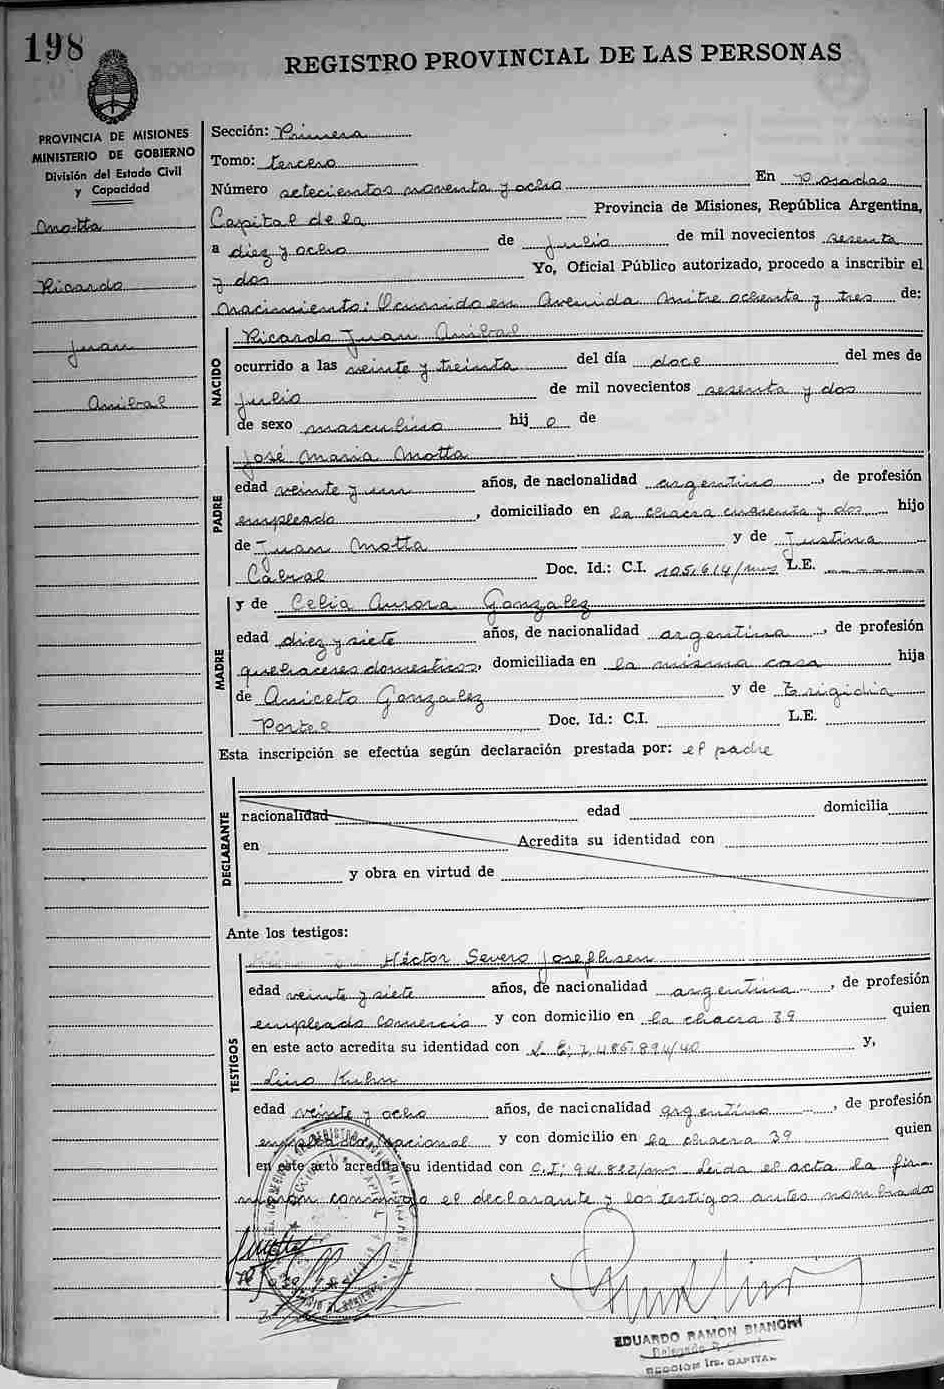 198
REGISTRO PROVINCIAL DE LAS PERSONAS
PROVINCIA DE MISIONES
MINISTERIO DE GOBIERNO
División del Estado Civil
y Capacidad
Motta
Ricardo
Juan
Anibal
Sección: Primera
Tomo: tercero
Número setecientos noventa y ocho En Posadas
Capital de la Provincia de Misiones, República Argentina,
a diez y ocho de julio de mil novecientos sesenta
y dos Yo, Oficial Público autorizado, procedo a inscribir el
nacimiento: Ocurrido en Avenida Mitre ochenta y tres de:
NACIDO
Ricardo Juan Anibal
ocurrido a las veinte y treinta del día doce del mes de
julio de mil novecientos sesenta y dos
de sexo masculino hij o de
PADRE
José Maria Motta
edad veinte y un años, de nacionalidad argentino, de profesión
empleado, domiciliado en la chacra cuarenta y dos hijo
de Juan Motta y de Justina
Cabral Doc. Id.: C.I. 105.614/mnes L.E.
MADRE
y de Celia Aurora Gonzalez
edad diez y siete años, de nacionalidad argentina, de profesión
quehaceres domesticos, domiciliada en la misma casa hija
de Aniceto Gonzalez y de Brigidia
Portel Doc. Id.: C.I. L.E.
Esta inscripción se efectúa según declaración prestada por: el padre
DECLARANTE
nacionalidad edad domicilia
en Acredita su identidad con
y obra en virtud de
Ante los testigos:
TESTIGOS
Héctor Severo Josephsen
edad veinte y siete años, de nacionalidad argentina, de profesión
empleado comercio y con domicilio en la chacra 39 quien
en este acto acredita su identidad con L.E: 7.486.894/40 y,
Lino Kuhn
edad veinte y ocho años, de nacionalidad argentino, de profesión
nacional y con domicilio en la chacra 39 quien
en este acto acredita su identidad con C.I: 94.822/mns Leida el acta la fir-
maron conmigo el declarante y los testigos antes nombrados
EDUARDO RAMON BIANCHI
Delegado
SECCION 1ra. CAPITAL